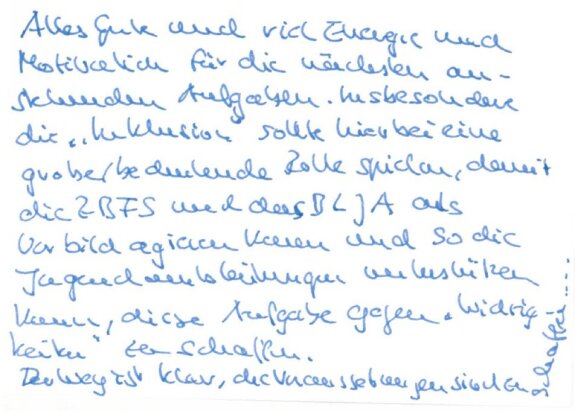 Alles Gute und viel Energie und
Motivation für die nächsten an-
stehenden Aufgaben. Insbesondere
die „Inklusion" sollte hierbei eine
große/bedeutende Rolle spielen, damit
die ZBFS und das BLJA als
Vorbild agieren kann und so die
Jugendamtsleitungen unterstützen
kann, diese Aufgabe gegen „Widrig-
keiten" zu schaffen.
Der Weg ist klar, die Voraussetzungen sind zu
schaffen....